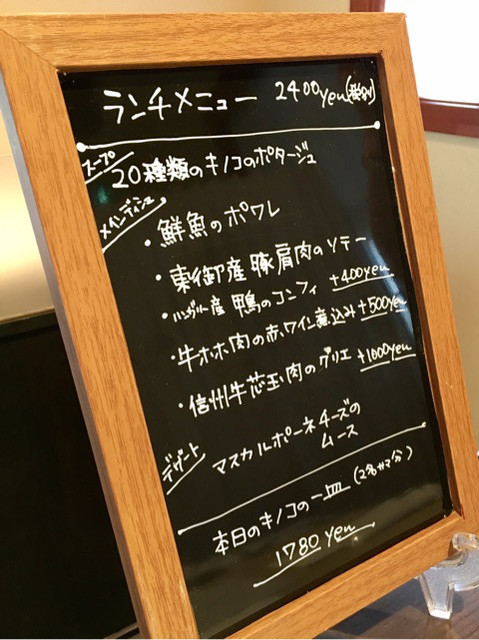 ランチメニュー 2400yen(税別)
スープ
20種類のキノコのポタージュ
メインディッシュ
・鮮魚のポワレ
・東御産豚肩肉のソテー
・ハンガリー産 鴨のコンフィ +400yen
・牛ホホ肉の赤ワイン煮込み +500yen
・信州牛芯玉肉のグリエ +1000yen
デザート
マスカルポーネチーズの
ムース
本日のキノコの一皿(2名サマ分)
1780yen